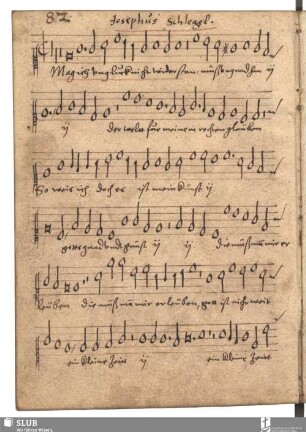 82
Josephus Schlegl.
Mag ich unglück nicht widerstan, muß ungnad han ij
ij der welt für mein rechten glauben
So weis ich doch es ist mein kunst ij
gottes gnad und gunst ij ij die muß man mir er
leuben die muß man mir erleuben, gott ist nicht weit
ein kleine Zeit ij ein kleine Zeit
SLUB
Wir führen Wissen.